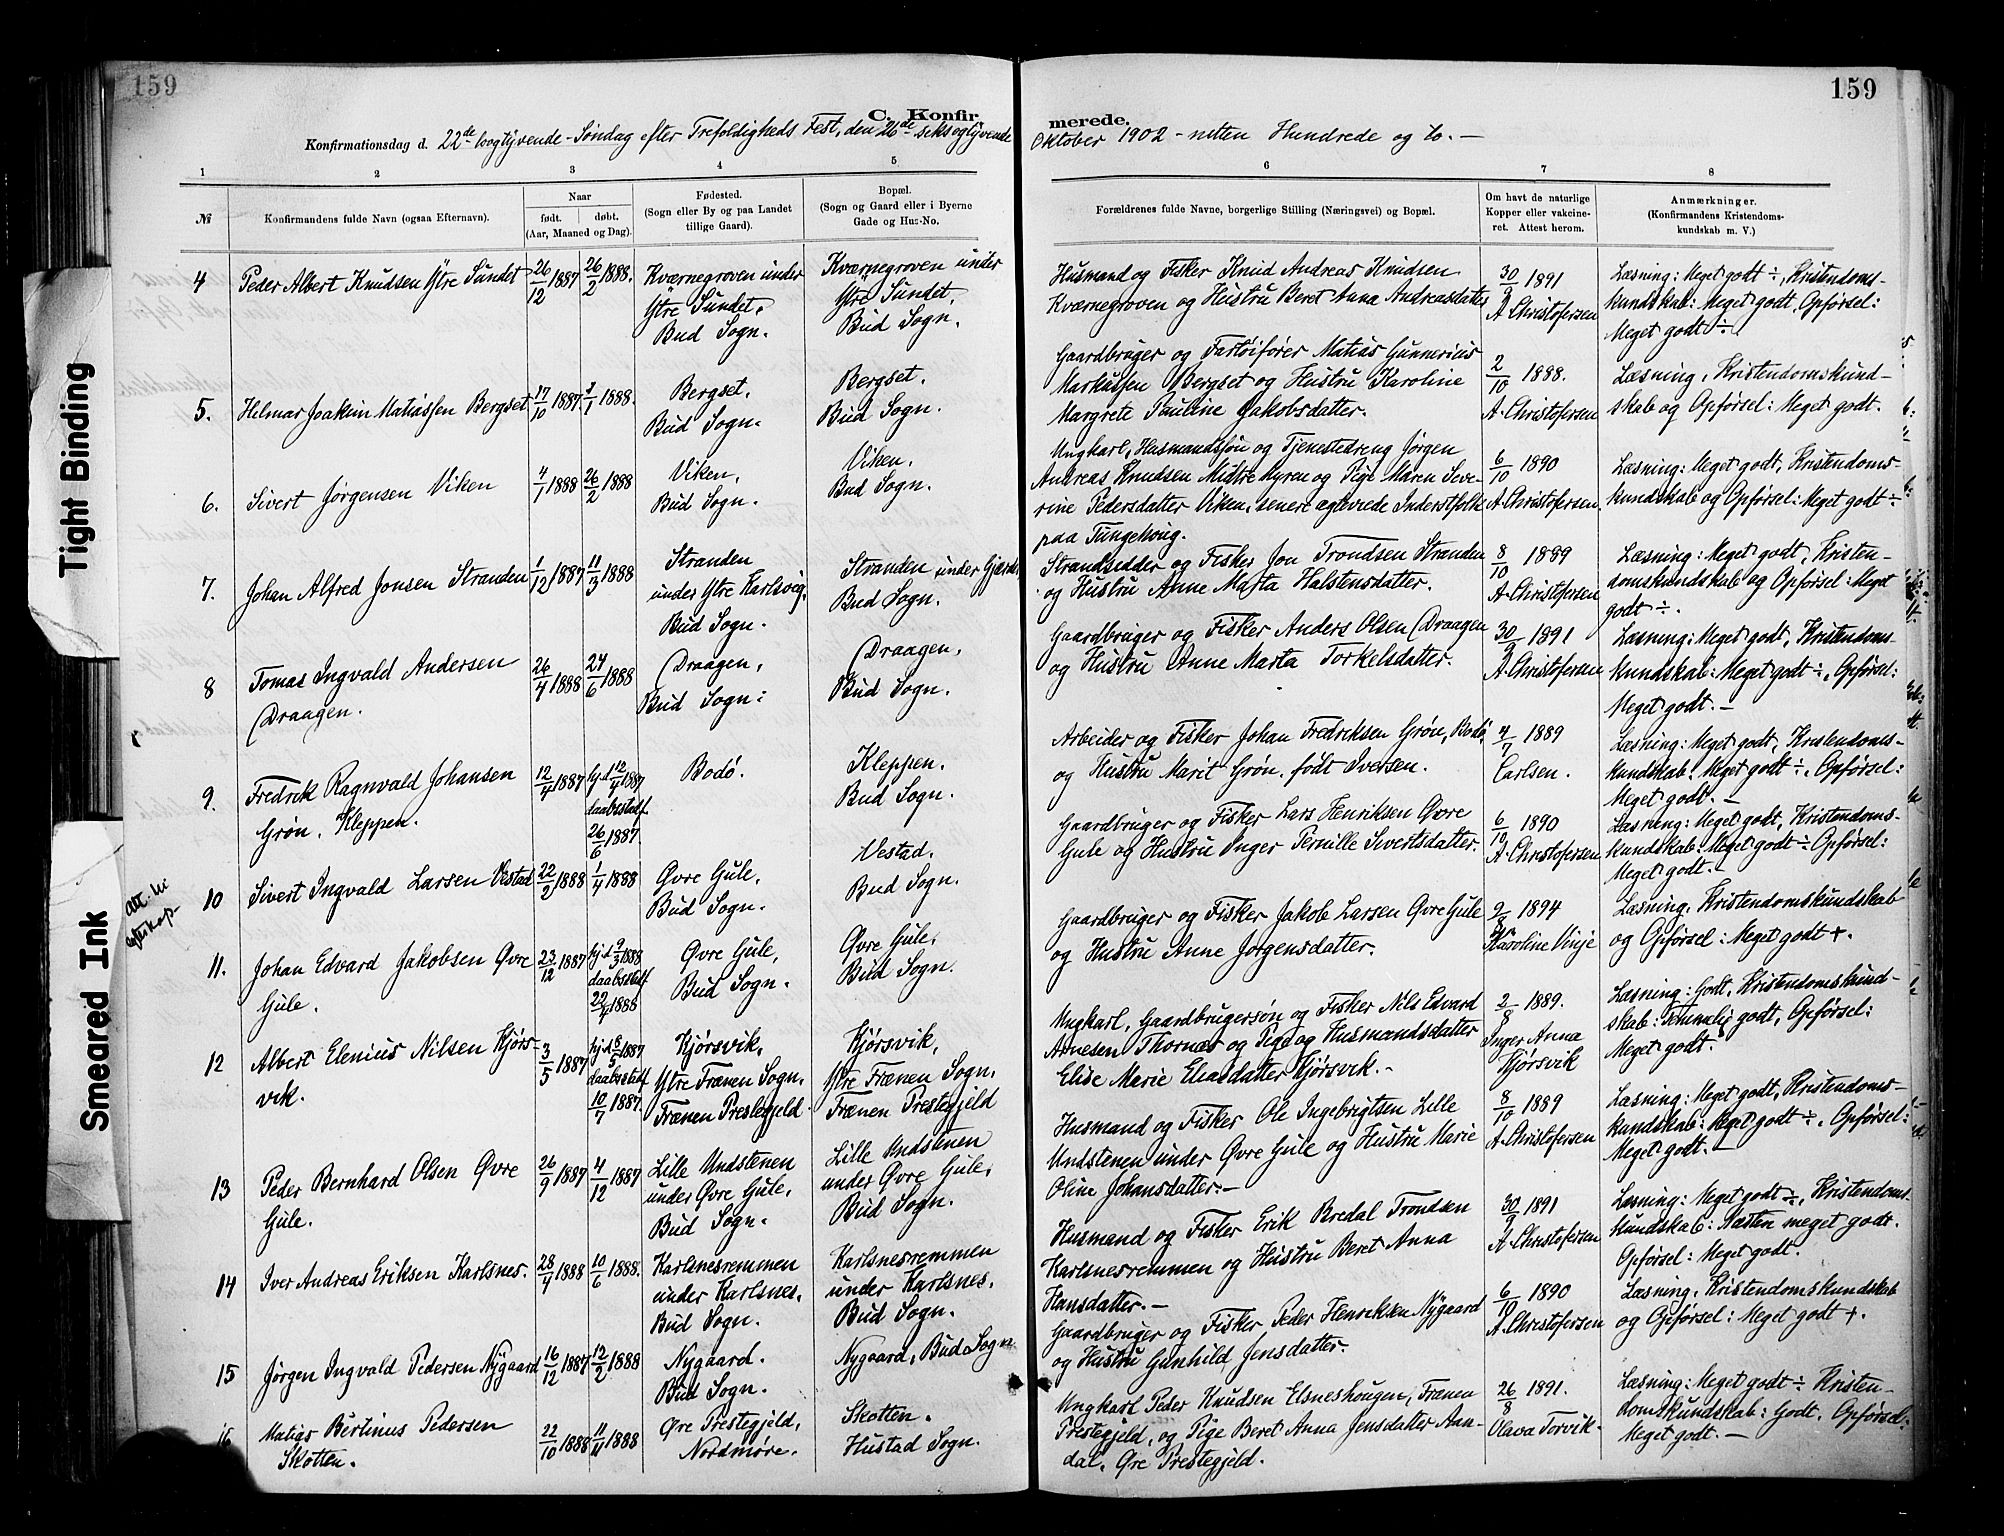 159
159
C. Konfirmerede.
Konfirmationsdag d. 22de toogtyvende Søndag efter Trefoldigheds Fest, den 26de seksogtyvende Oktober 1902 - nitten Hundrede og to. -
1 2 3 4 5 6 7 8
№
Konfirmandens fulde Navn (ogsaa Efternavn).
Naar
født. døbt.
(Aar, Maaned og Dag).
Fødested.
(Sogn eller By og paa Landet
tillige Gaard).
Bopæl.
(Sogn og Gaard eller i Byerne
Gade og Hus-No.
Forældrenes fulde Navne, borgerlige Stilling (Næringsvei) og Bopæl.
Om havt de naturlige
Kopper eller vakcine-
ret. Attest herom.
Anmærkninger.
(Konfirmandens Kristendoms-
kundskab m. V.)
4
Peder Albert Knudsen Ytre Sundet
26/12 1887
26/2 1888.
Kværnegroven under
Ytre Sundet,
Bud Sogn.
Kværnegroven under
Ytre Sundet,
Bud Sogn.
Husmand og Fisker Knud Andreas Knudsen
Kværnegroven og Hustru Beret Anna Andreasdatter
30/9 1891
A. Christofersen
Læsning: Meget godt ÷, Kristendoms-
kundskab: Meget godt, Opførsel:
Meget godt ÷.
5.
Helmar Joakim Matiassen Bergset
17/10 1887
1/1 1888.
Bergset,
Bud Sogn.
Bergset,
Bud Sogn.
Gaardbruger og Fartøifører Matias Gunnerius
Markussen Bergset og Hustru Karoline
Margrete Pauline Jakobsdatter.
2/10 1888.
A. Christofersen
Læsning, Kristendomskund-
skab og Opførsel: Meget godt.
6.
Sivert Jørgensen Viken
4/1 1888
26/2 1888
Viken,
Bud Sogn.
Viken,
Bud Sogn.
Ungkarl, Husmandssøn og Tjenestedreng Jørgen
Andreas Knudsen Midtre Myren og Pige Maren Seve-
rine Pedersdatter Viken, senere ægteviede Inderstfolk
paa Tungehaug.
6/10 1890
A. Christofersen
Læsning: Meget godt, Kristendoms-
kundskab og Opførsel: Meget godt ÷
7.
Johan Alfred Jonsen Stranden
1/12 1887
11/3 1888
Stranden
under Ytre Karlsvig,
Bud Sogn.
Stranden under
Bud Sogn.
Strandsidder og Fisker Jon Trondsen Stranden
og Hustru Anne Marta Halstensdatter.
8/10 1889
A. Christofersen
Læsning: Meget godt, Kristen-
domskundskab og Opførsel: Meget
godt ÷.
8
Tomas Ingvald Andersen
Draagen.
26/4 1888
24/6 1888
Draagen,
Bud Sogn:
Draagen,
Bud Sogn.
Gaardbruger og Fisker Anders Olsen Draagen
og Hustru Anne Marta Torkelsdatter.
30/9 1891
A. Christofersen
Læsning: Meget godt, Kristendoms-
kundskab: Meget godt ÷, Opførsel:
Meget godt. -
9.
Fredrik Ragnvald Johansen
Grøn, Kleppen.
12/4 1887
hj.d. 12/4 1887
daabsstadf.
26/6 1887
Bodø.
Kleppen.
Bud Sogn.
Arbeider og Fisker Johan Fredriksen Grøn, Bodø,
og Hustru Marit Grøn, født Iversen.
4/7 1889
Carlsen.
Læsning: Meget godt, Kristendoms-
kundskab: Meget godt ÷, Opførsel:
Meget godt. -
10
Att. til
Sivert Ingvald Larsen Vestad
22/2 1888
1/4 1888
Øvre Gule,
Bud Sogn.
Vestad.
Bud Sogn.
Gaardbruger og Fisker Lars Henriksen Øvre
Gule og Hustru Inger Pernille Sivertsdatter.
6/10 1890
A. Christofersen
Læsning: Meget godt, Kristendoms-
kundskab: Meget godt ÷ Opførsel:
Meget godt. -
11.
Johan Edvard Jakobsen Øvre
Gule.
23/12 1887
hj.d. 9/3 1888
daabsstadf.
22/4 1888
Øvre Gule,
Bud Sogn.
Øvre Gule,
Bud Sogn.
Gaardbruger og Fisker Jakob Larsen Øvre Gule
og Hustru Anne Jørgensdatter.
9/8 1894
Karoline Vinje
Læsning, Kristendomskundskab
og Opførsel: Meget godt +.
12
Albert Elenius Nilsen Hjørs-
vik.
3/5 1887
hj.d. 8/5 1887
daabsstadf.
10/7 1887.
Hjørsvik,
Ytre Frænen Sogn,
Frænen Prestegjeld.
Hjørsvik,
Ytre Frænen Sogn,
Frænen Prestegjeld
Ungkarl, Gaardbrugersøn og Fisker Nils Edvard
Arnesen Thornæs og Pige og Husmandsdatter
Elise Marie Eliasdatter Hjørsvik. -
2/8 1889.
Inger Anna
Hjørsvik
Læsning: Godt, Kristendomskund-
skab: Temmelig godt, Opførsel:
Meget godt.
13
Peder Bernhard Olsen Øvre
Gule.
26/9 1887
4/12 1887
Lille Undstenen
under Øvre Gule,
Bud Sogn.
Lille Undstenen
under Øvre Gule,
Bud Sogn.
Husmand og Fisker Ole Ingebrigtsen Lille
Undstenen under Øvre Gule og Hustru Marie
Oline Johansdatter. -
8/10 1889
A. Christofersen
Læsning: Meget godt, Kristendoms-
kundskab: Meget godt ÷, Opførsel:
Meget godt. -
14
Iver Andreas Eriksen Karlsnes.
28/4 1888
10/6 1888.
Karlsnesremmen
under Karlsnes,
Bud Sogn.
Karlsnesremmen
under Karlsnes,
Bud Sogn.
Husmand og Fisker Erik Bredal Trondsen
Karlsnesremmen og Hustru Beret Anna
Hansdatter. -
30/9 1891
A. Christofersen
Læsning: Meget godt ÷, Kristendoms-
kundskab: Næsten meget godt.
Opførsel: Meget godt.
15
Jørgen Ingvald Pedersen Nygaard
16/12 1887
12/2 1888
Nygaard.
Bud Sogn.
Nygaard, Bud Sogn
Gaardbruger og Fisker Peder Henriksen Nygaard
og Hustru Gunhild Jensdatter.
6/10 1890
A. Christofersen
Læsning, Kristendomskundskab
og Opførsel: Meget godt +.
16
Matias Bertinus Pedersen
Skotten.
22/10 1888
11/11 1888
Øre Prestegjeld,
Nordmøre.
Skotten.
Hustad Sogn.
Ungkarl Peder Knudsen Elsneshougen, Frænen
Prestegjeld, og Pige Beret Anna Jensdatter Aan-
dal, Øre Prestegjeld.
26/8 1891.
Olava Torvik.
Læsning: Meget godt ÷ Kristen-
domskundskab: Godt, Opførsel:
Meget godt. -
Tight Binding
Smeared Ink